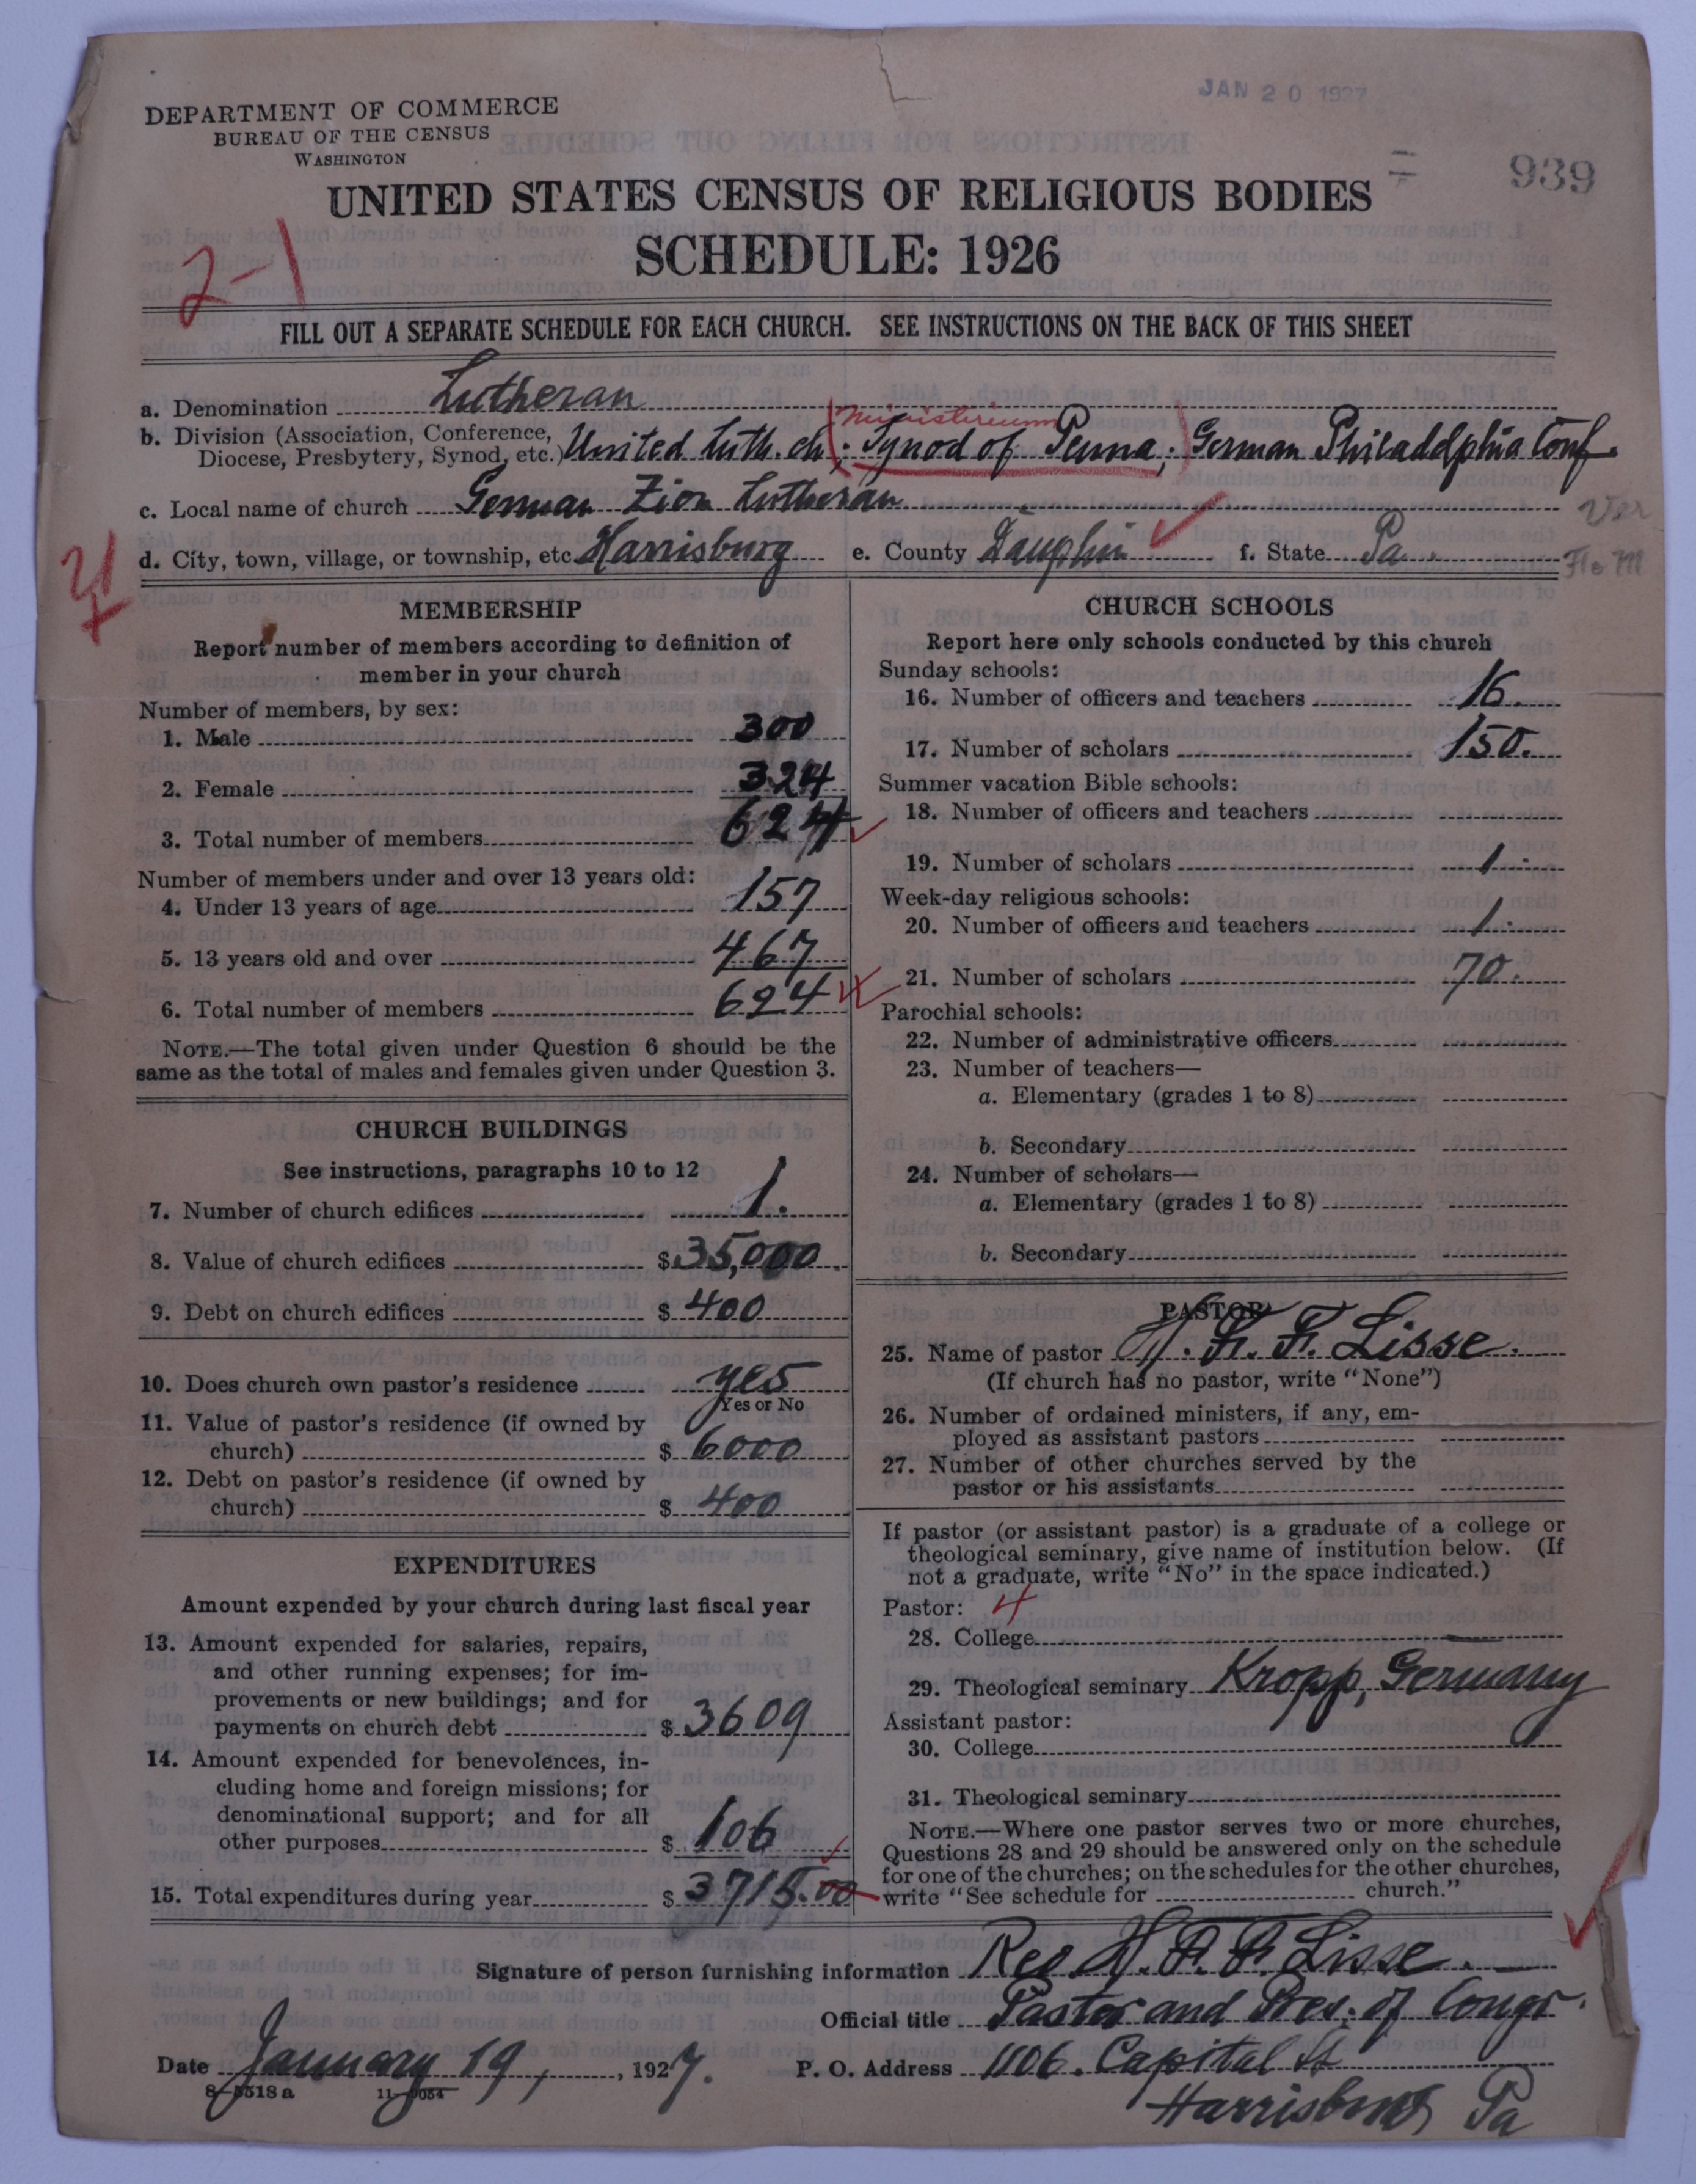 JAN 20 1927
939
DEPARTMENT OF COMMERCE
BUREAU OF THE CENSUS
WASHINGTON
UNITED STATES CENSUS OF RELIGIOUS BODIES
SCHEDULE: 1926
2-1
FILL OUT A SEPARATE SCHEDULE FOR EACH CHURCH. SEE INSTRUCTIONS ON THE BACK OF THIS SHEET
a. Denomination Lutheran
Ministerium
b. Division (Association, Conference, Diocese, Presbytery, Synod, etc.) United Luth. ch; Synod of Penna; German Philadelphia Conf.
c. Local name of church German Zion Lutheran
d. City, town, village, or township, etc. Harrisburg e. County Dauphin f. State Pa.
Ver
MEMBERSHIP
Report number of members according to definition of
member in your church
Number of members, by sex:
1. Male 300
2. Female 324
3. Total number of members 624
Number of members under and over 13 years old:
4. Under 13 years of age 157
5. 13 years old and over 467
6. Total number of members 624
NOTE.—The total given under Question 6 should be the
same as the total of males and females given under Question 3.
CHURCH BUILDINGS
See instructions, paragraphs 10 to 12
7. Number of church edifices 1.
8. Value of church edifices $35,000.
9. Debt on church edifices $400
10. Does church own pastor's residence yes
Yes or No
11. Value of pastor's residence (if owned by
church) $6000
12. Debt on pastor's residence (if owned by
church) $400
EXPENDITURES
Amount expended by your church during last fiscal year
13. Amount expended for salaries, repairs,
and other running expenses; for im-
provements or new buildings; and for
payments on church debt $3609
14. Amount expended for benevolences, in-
cluding home and foreign missions; for
denominational support; and for all
other purposes $106
15. Total expenditures during year $3715.00
CHURCH SCHOOLS
Report here only schools conducted by this church
Sunday schools:
16. Number of officers and teachers 16.
17. Number of scholars 150.
Summer vacation Bible schools:
18. Number of officers and teachers
19. Number of scholars 1.
Week-day religious schools:
20. Number of officers and teachers 1.
21. Number of scholars 70.
Parochial schools:
22. Number of administrative officers
23. Number of teachers—
a. Elementary (grades 1 to 8)
b. Secondary
24. Number of scholars—
a. Elementary (grades 1 to 8)
b. Secondary
PASTOR
25. Name of pastor H. F. F. Lisse.
(If church has no pastor, write "None")
26. Number of ordained ministers, if any, em-
ployed as assistant pastors
27. Number of other churches served by the
pastor or his assistants
If pastor (or assistant pastor) is a graduate of a college or
theological seminary, give name of institution below. (If
not a graduate, write "No" in the space indicated.)
Pastor: 4
28. College —
29. Theological seminary Kropp, Germany
Assistant pastor:
30. College
31. Theological seminary
NOTE.—Where one pastor serves two or more churches,
Questions 28 and 29 should be answered only on the schedule
for one of the churches; on the schedules for the other churches,
write "See schedule for church."
Signature of person furnishing information Rev H. F. F. Lisse.
Official title Pastor and Pres. of Congr.
Date January 19, 1927. P. O. Address 1106. Capital St
Harrisburg Pa
8-5518a 11-9054